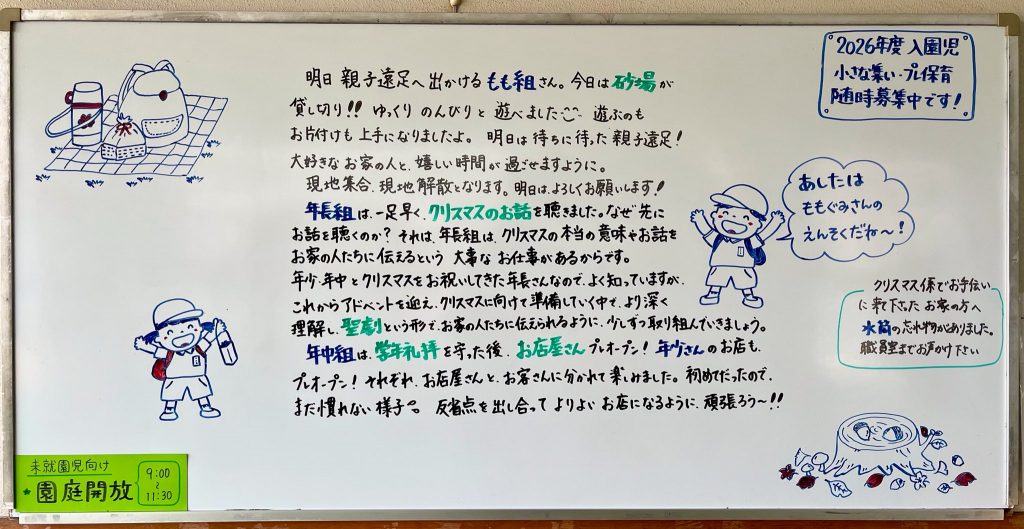 明日 親子遠足へ出かける もも組さん。今日は 砂場が
貸し切り!! ゆっくり のんびりと 遊べました 遊ぶのも
お片付けも 上手になりましたよ。 明日は 待ちに待った 親子遠足!
大好きな お家の人と、嬉しい時間が 過ごせますように。
現地集合、現地解散となります。明日は、よろしくお願いします!
年長組は、一足早く、クリスマスのお話を聴きました。なぜ 先に
お話を聴くのか? それは、年長組は、クリスマスの本当の意味やお話を
お家の人たちに伝えるという 大事な お仕事があるからです。
年少・年中とクリスマスをお祝いしてきた年長さんなので、よく知っていますが、
これからアドベントを迎え、クリスマスに向けて準備していく中で、より深く
理解し、聖劇という形で、お家の人たちに伝えられるように、少しずつ取り組んでいきましょう。
年中組は、学年礼拝を守った後、お店屋さん プレオープン! 年少さんのお店も、
プレオープン! それぞれ、お店屋さんと、お客さんに分かれて楽しみました。初めてだったので、
まだ慣れない様子 反省点を出し合って よりよい お店になるように、頑張ろう〜!!
2026年度 入園児
小さな集い・プレ保育
随時募集中です!
あしたは
ももぐみさんの
えんそくだね〜!
クリスマス係でお手伝い
に来て下さった お家の方へ
水筒の忘れ物がありました。
職員室までお声かけ下さい
未就園児向け
★園庭開放
9:00
〜
11:30